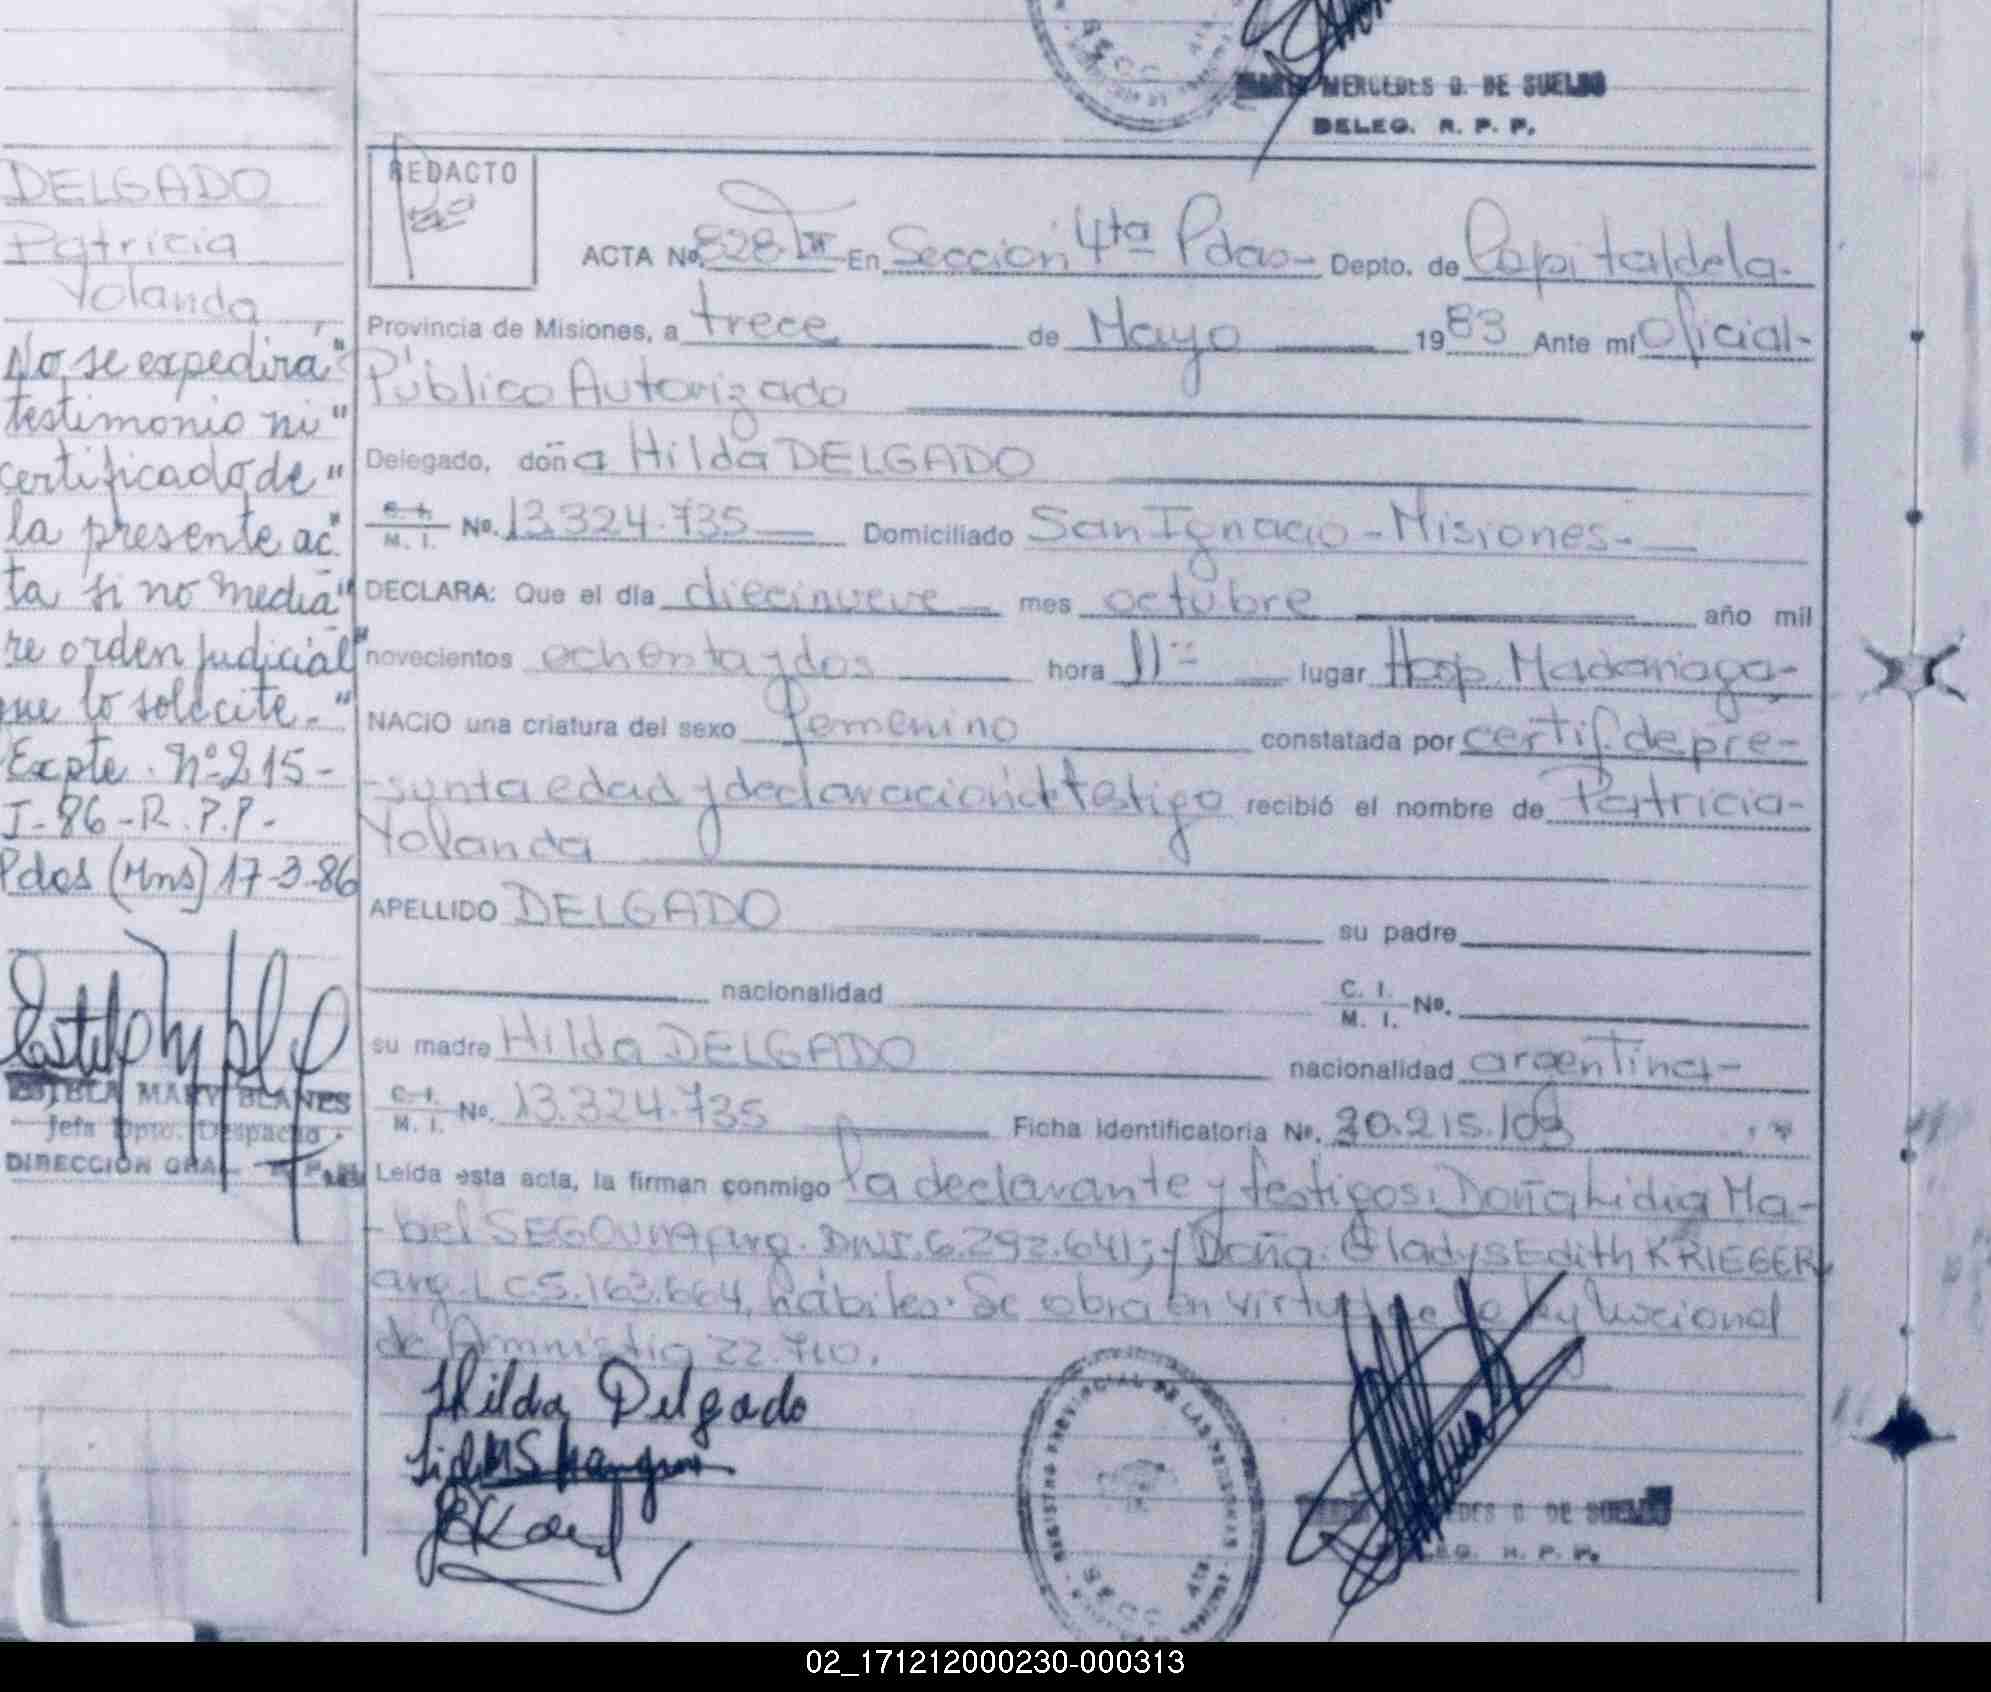 MERCEDES G. DE SUELDO
DELEG. R. P. P.
DELGADO
Patricia
Yolanda
No se expedirá"
testimonio ni"
certificado de"
la presente ac"
ta si no media"
re orden judicial"
que lo solicite."
Expte. Nº 215-
J-86-R.P.P-
Pdas (Mns) 17-3-86
ESTELA MARY BLANES
Jefa Dpto. Despacho
DIRECCIÓN GRAL.
REDACTO
ACTA Nº. 828 En Sección 4ta Pdas- Depto. de Capital de la-
Provincia de Misiones, a trece de Mayo 1983 Ante mí Oficial-
Público Autorizado
Delegado, doña Hilda DELGADO
C. I. M. I. Nº. 13.324.735 Domiciliado San Ignacio - Misiones-
DECLARA: Que el día diecinueve mes octubre año mil
novecientos ochenta y dos hora 11 lugar Hosp. Madariaga-
NACIO una criatura del sexo femenino constatada por certif. de pre-
-sunta edad y declaración de testigo recibió el nombre de Patricia-
Yolanda
APELLIDO DELGADO su padre
nacionalidad C. I. M. I. Nº.
su madre Hilda DELGADO nacionalidad argentina-
C. I. M. I. Nº. 13.324.735 Ficha identificatoria Nº. 20.215.108
Leída esta acta, la firman conmigo la declarante y testigos: Doña Lidia Ma-
-bel arg. DNI. 6.292.641; y Doña Gladys Edith KRIEGER
arg. LC 5.163.664, hábiles. Se obra en virtud de la Ley Nacional
de Amnistía 22.710.
Hilda Delgado
REGISTRO PROVINCIAL DE LAS PERSONAS
SECC 4ta
DE SUELDO
R. P. P.
02_171212000230-000313